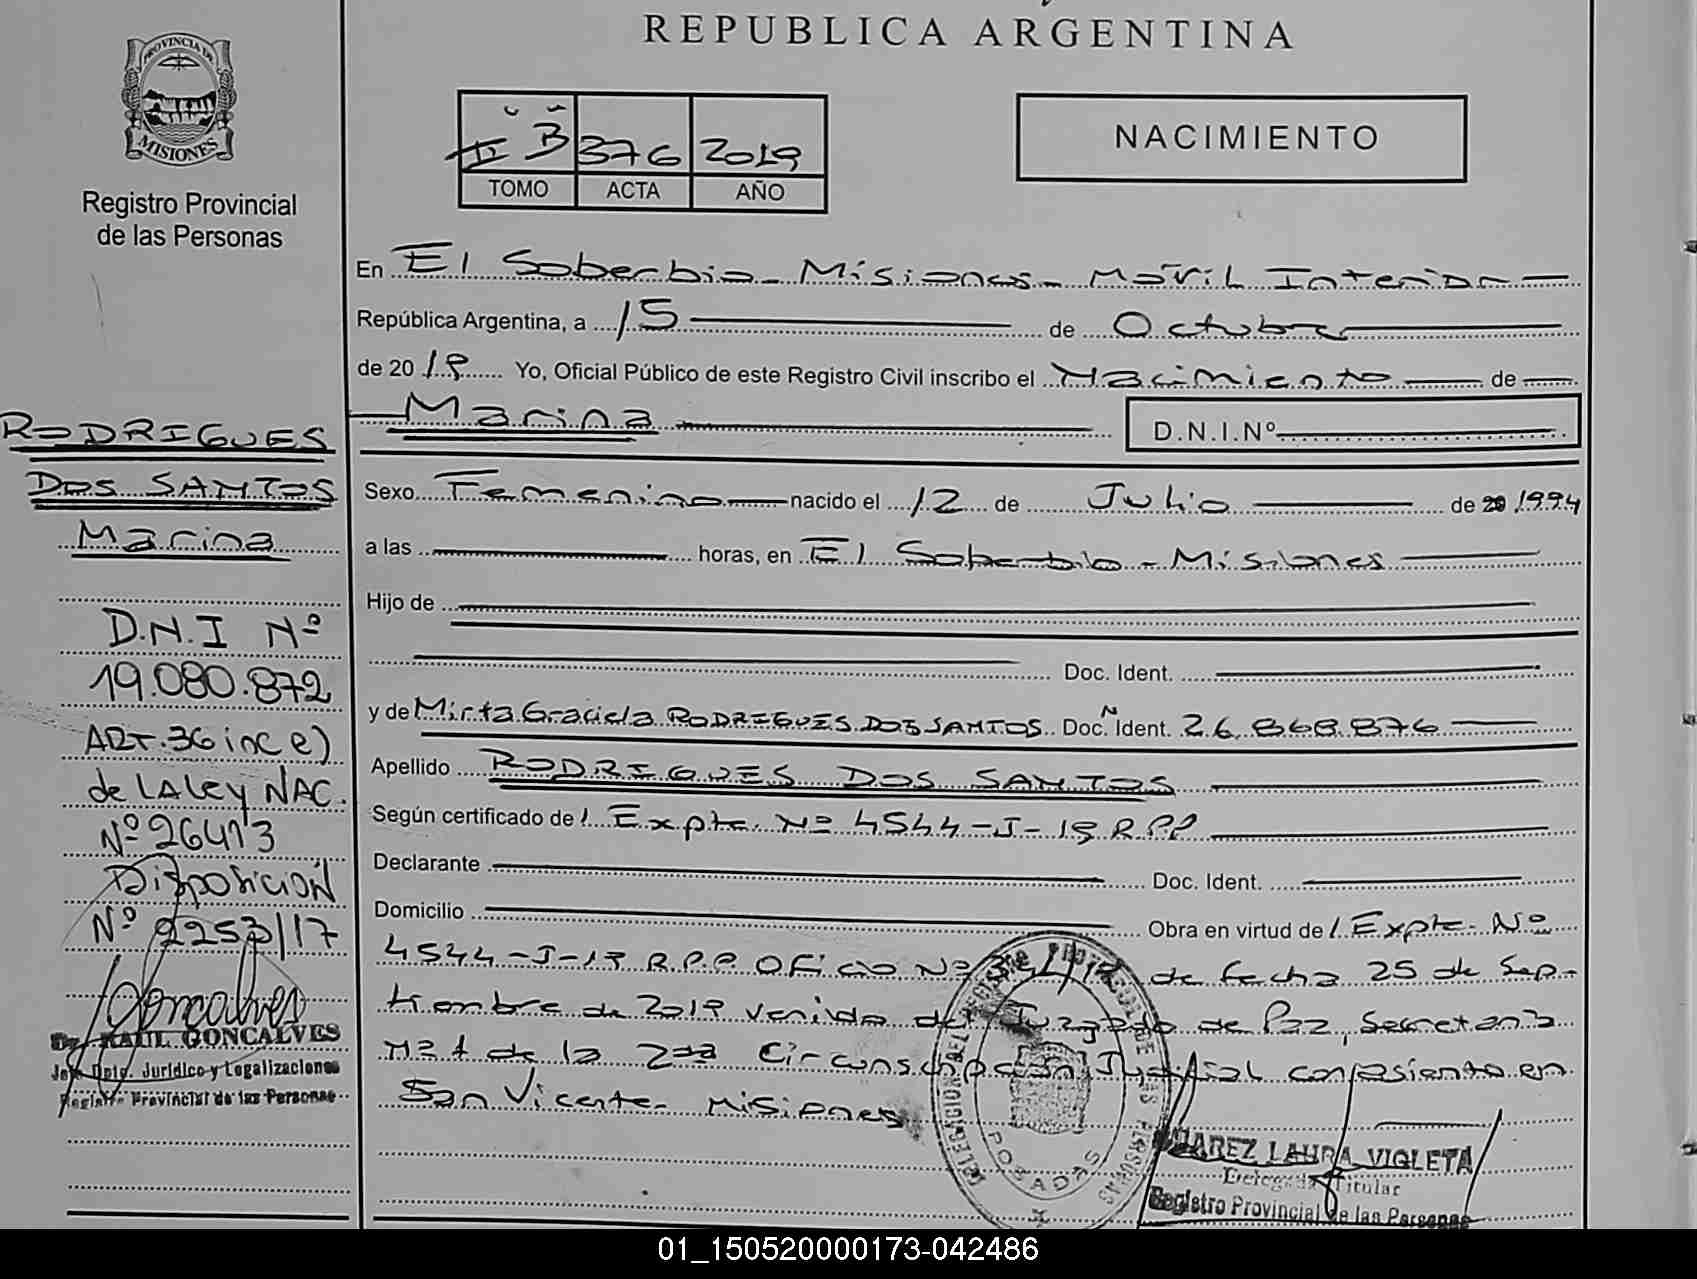 REPUBLICA ARGENTINA
PROVINCIA DE
MISIONES
Registro Provincial
de las Personas
B 376 2019
TOMO ACTA AÑO
NACIMIENTO
En El Soberbio - Misiones - Movil Interior
República Argentina, a 15 de Octubre
de 2019 Yo, Oficial Público de este Registro Civil inscribo el Nacimiento de
Marina D.N.I.Nº
Sexo Femenino nacido el 12 de Julio de 1994
a las horas, en El Soberbio - Misiones
Hijo de
Doc. Ident.
y de Mirta Graciela RODRIGUES DOS SANTOS Doc. Ident. 26.868.876
Apellido RODRIGUES DOS SANTOS
Según certificado de Expte. Nº 4544-J-19 R.P.P
Declarante Doc. Ident.
Domicilio Obra en virtud de Expte. Nº
4544-J-19 R.P.P. Oficio Nº de fecha 25 de Sep-
tiembre de 2019 venido del Juzgado de Paz, Secretaria
Nº 1 de la 2da Circunscripcion Judicial con asiento en
San Vicente Misiones
RODRIGUES
DOS SANTOS
Marina
D.N.I Nº
19.080.872
ART. 36 inc e)
de LA Ley NAC.
Nº 26413
Disposición
Nº 2253/17
Goncalves
Dr. RAUL GONCALVES
Jefe Dpto. Jurídico y Legalizaciones
Registro Provincial de las Personas
POSADAS
SUAREZ LAURA VIOLETA
Delegada Titular
Registro Provincial de las Personas
01_150520000173-042486